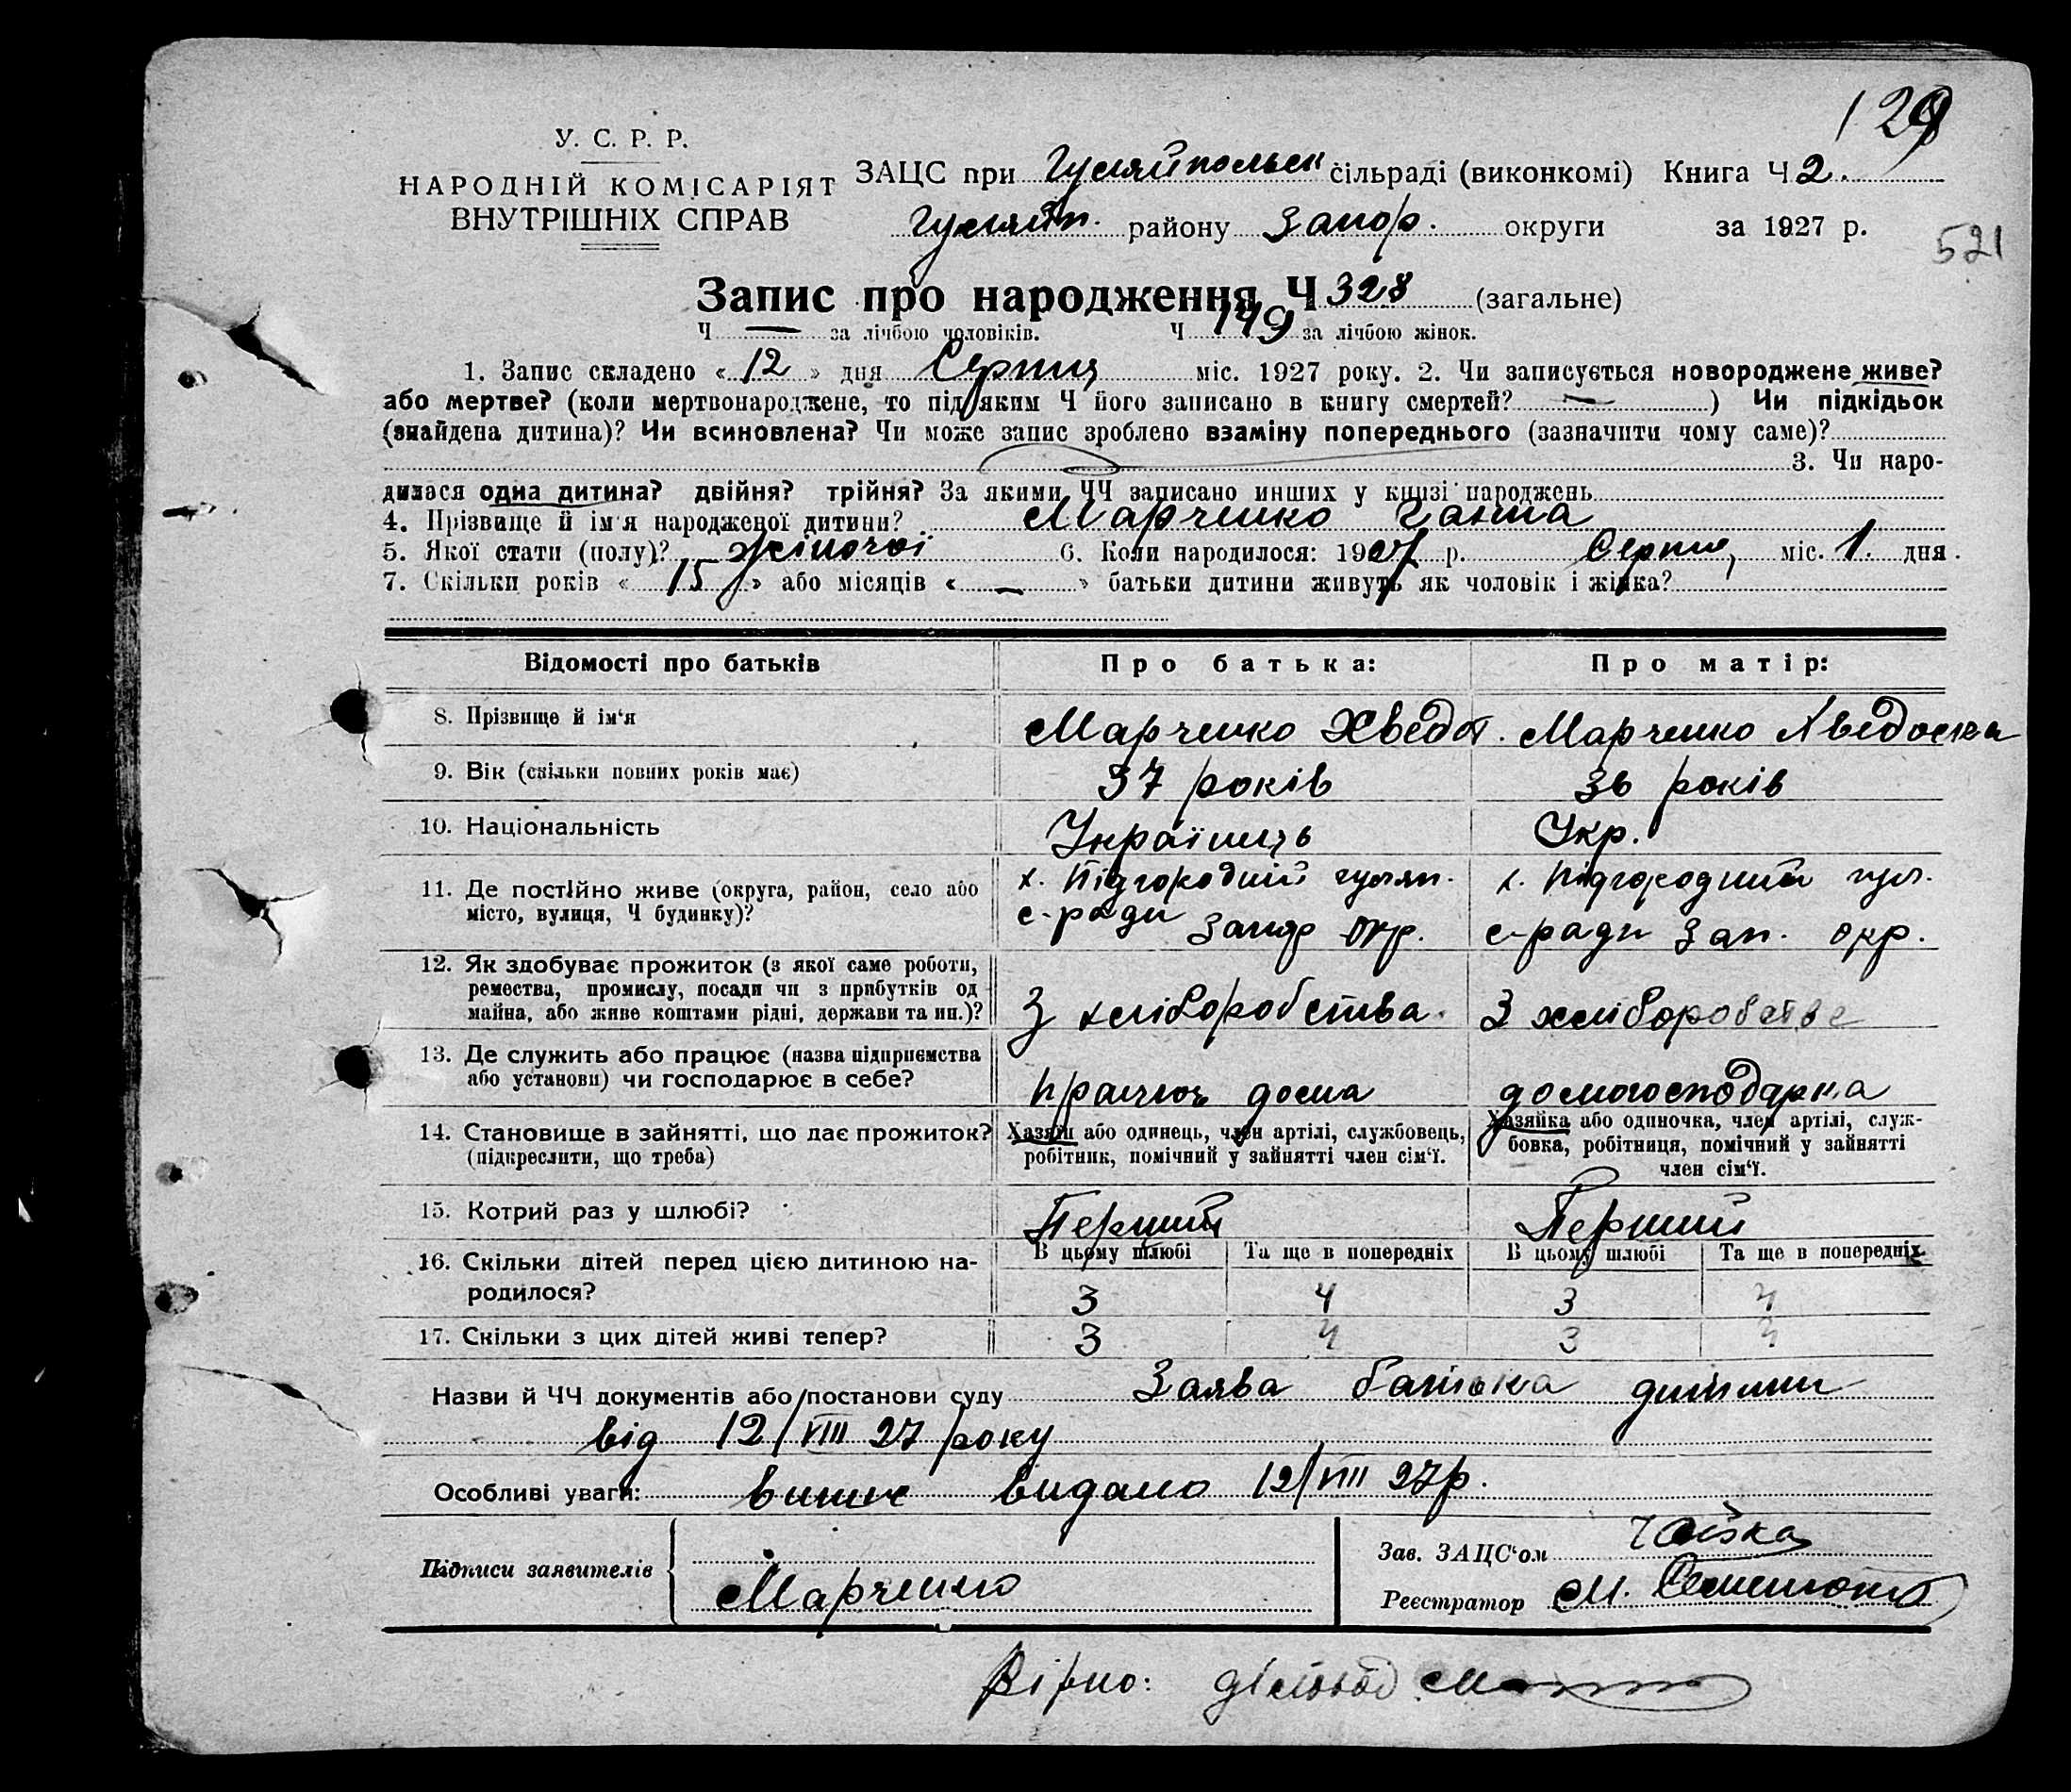 129
У. С. Р. Р.
НАРОДНІЙ КОМІСАРІЯТ
ВНУТРІШНІХ СПРАВ
ЗАЦС при Гуляйпольськ сільраді (виконкомі) Книга Ч 2.
Гуляйп. району Запор. округи за 1927 р.
521
Запис про народження Ч 328 (загальне)
Ч — за лічбою чоловіків. Ч 149 за лічбою жінок.
1. Запис складено « 12 » дня Серпня міс. 1927 року. 2. Чи записується новороджене живе?
або мертве? (коли мертвонароджене, то під яким Ч його записано в книгу смертей? — ) Чи підкідьок
(знайдена дитина)? Чи всиновлена? Чи може запис зроблено взаміну попереднього (зазначити чому саме)?
3. Чи наро-
дилася одна дитина? двійня? трійня? За якими ЧЧ записано инших у книзі народжень
4. Прізвище й ім'я народженої дитини? Марченко Ганна
5. Якої стати (полу)? жіночої 6. Коли народилося: 1927 р. Серпня, міс. 1. дня.
7. Скільки років « 15 » або місяців « — » батьки дитини живуть як чоловік і жінка?
Відомості про батьків Про батька: Про матір:
8. Прізвище й ім‘я Марченко Хведот. Марченко Хведоска
9. Вік (скільки повних років має) 37 років 36 років
10. Національність Українець Укр.
11. Де постійно живе (округа, район, село або
місто, вулиця, Ч будинку)?
х. Підгородній гуляп.
с-ради Запор окр.
х. Підгородний гул.
с-ради Зап. окр.
12. Як здобуває прожиток (з якої саме роботи,
ремества, промислу, посади чи з прибутків од
майна, або живе коштами рідні, держави та ин.)?
З хліборобства. З хліборобства
13. Де служить або працює (назва підприємства
або установи) чи господарює в себе?
працює дома домогосподарка
14. Становище в зайнятті, що дає прожиток?
(підкреслити, що треба)
Хазяїн або одинець, член артілі, службовець,
робітник, помічний у зайнятті член сім‘ї.
Хазяйка або одиночка, член артілі, служ-
бовка, робітниця, помічний у зайнятті
член сім‘ї.
15. Котрий раз у шлюбі? Перший Перший
16. Скільки дітей перед цією дитиною на-
родилося?
В цьому шлюбі Та ще в попередніх В цьому шлюбі Та ще в попередніх
3 4 3 4
17. Скільки з цих дітей живі тепер? 3 4 3 4
Назви й ЧЧ документів або постанови суду Заява батька дитини
від 12/VIII 27 року
Особливі уваги: видано 12/VIII 27р.
Підписи заявителів Марченко
Зав. ЗАЦС‘ом
Реєстратор М.
Вірно: